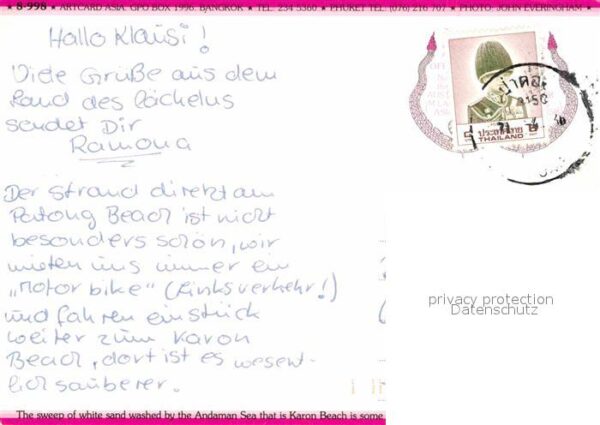 ★ 8-998 ★ ARTCARD ASIA. GPO BOX 1996. BANGKOK ★ TEL. 234 5360 ★ PHUKET TEL. (076) 216 707 ★ PHOTO: JOHN EVERINGHAM ★
Hallo Klausi!
Viele Grüße aus dem
Land des Lächelns
sendet Dir
Ramona
ประเทศไทย
THAILAND
Der Strand direkt am
Patong Beach ist nicht
besonders schön, wir
mieten uns immer ein
„Motor bike" (Linksverkehr!)
und fahren ein Stück
weiter zum Karon
Beach, dort ist es wesent-
lich sauberer.
privacy protection
Datenschutz
The sweep of white sand washed by the Andaman Sea that is Karon Beach is some